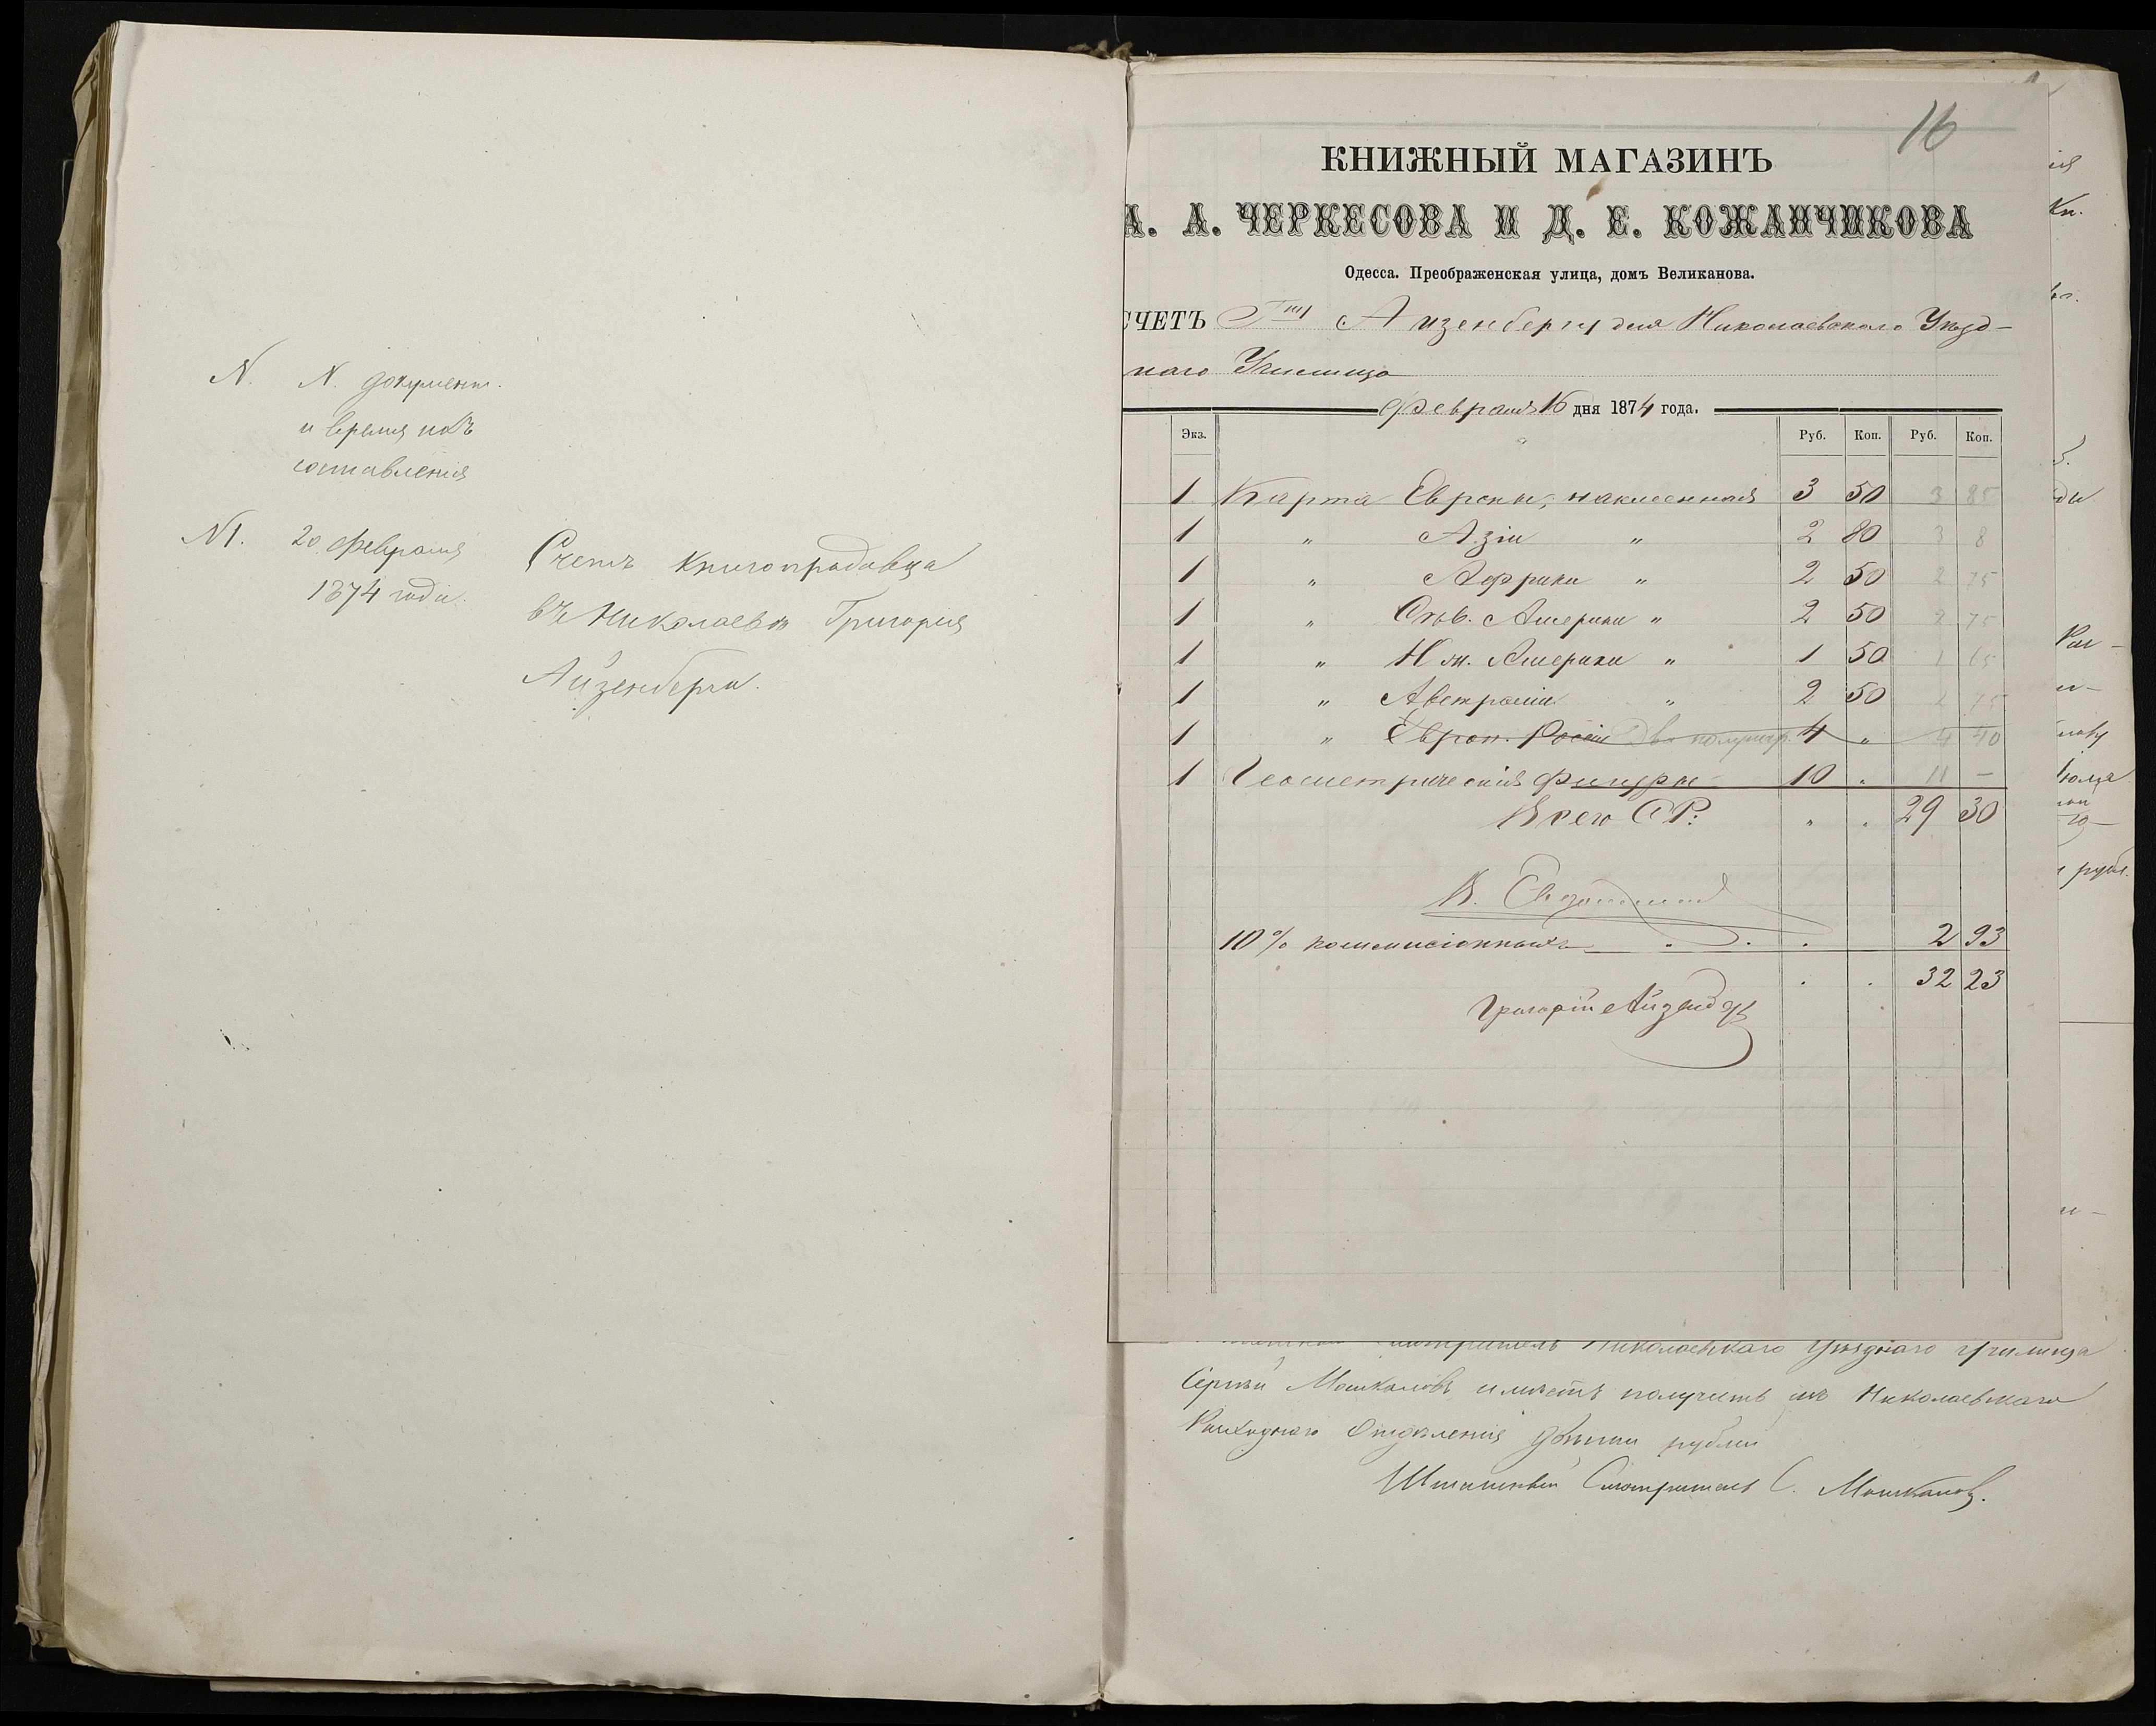 N. N. документ.
и время ихъ
составленія
N1. 20 февраля
1874 года.
Счетъ книгопродавца
въ Николаевѣ Григорія
Айзенберга.
16
КНИЖНЫЙ МАГАЗИНЪ
А. А. ЧЕРКЕСОВА И Д. Е. КОЖАНЧИКОВА
Одесса. Преображенская улица, домъ Великанова.
СЧЕТЪ Гну Айзенбергу для Николаевскаго Уѣзд-
наго Училища
Февраля 16 дня 1874 года.
Экз. Руб. Коп. Руб. Коп.
1 Карта Европы, наклеенная 3 50 3 85
1 " Азіи " 2 80 3 8
1 " Африки " 2 50 2 75
1 " Сѣв. Америки " 2 50 2 75
1 " Юж. Америки " 1 50 1 65
1 " Австраліи " 2 50 2 75
1 " Европ. Россіи 4 " 4 40
1 Геометрическія фигуры 10 " 11 —
Всего СР: " " 29 30
10% коммисіонныхъ 2 93
32 23
Григорій Айзенбергъ
Смотритель Николаевскаго Уѣзднаго училища
Сергѣй Машкановъ имѣетъ получить изъ Николаевскаго
Расходнаго Отдѣленія рубли
Штатный Смотритель С. Машкановъ.